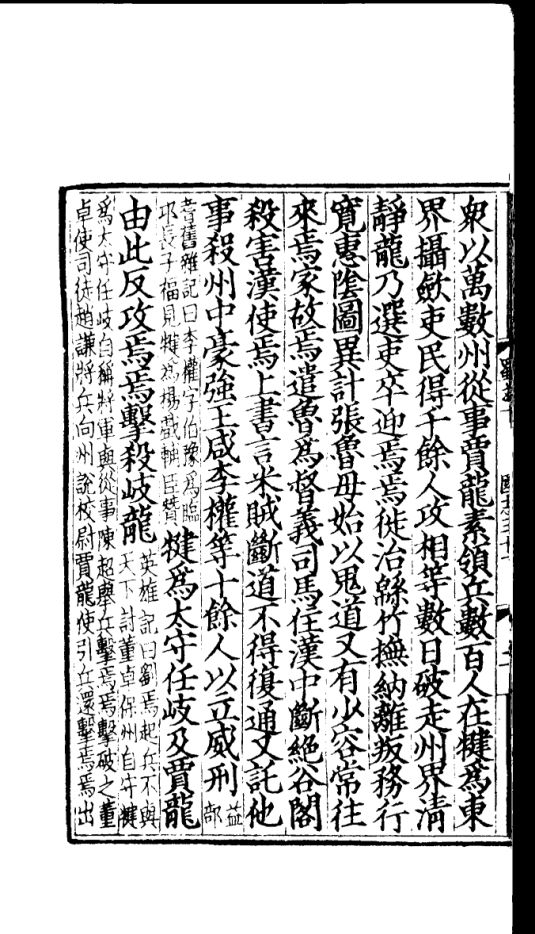 衆以萬數州從事賈龍素領兵數百人在犍爲東
界攝斂吏民得千餘人攻相等數日破走州界淸
靜龍乃選吏卒迎焉焉徙治緜竹撫納離叛務行
寬惠陰圖異計張魯母始以鬼道又有少容常往
來焉家故焉遣魯爲督義司馬住漢中斷絕谷閣
殺害漢使焉上書言米賊斷道不得復通又託他
事殺州中豪強王咸李權等十餘人以立威刑益
部
耆舊雜記曰李權字伯豫爲臨
邛長子福見犍爲楊戲輔臣贊
犍爲太守任岐及賈龍
由此反攻焉焉擊殺岐龍
英雄記曰劉焉起兵不與
天下討董卓保州自守犍
爲太守任岐自稱將軍與從事陳超舉兵擊焉焉擊破之董
卓使司徒趙謙將兵向州說校尉賈龍使引兵還擊焉焉出